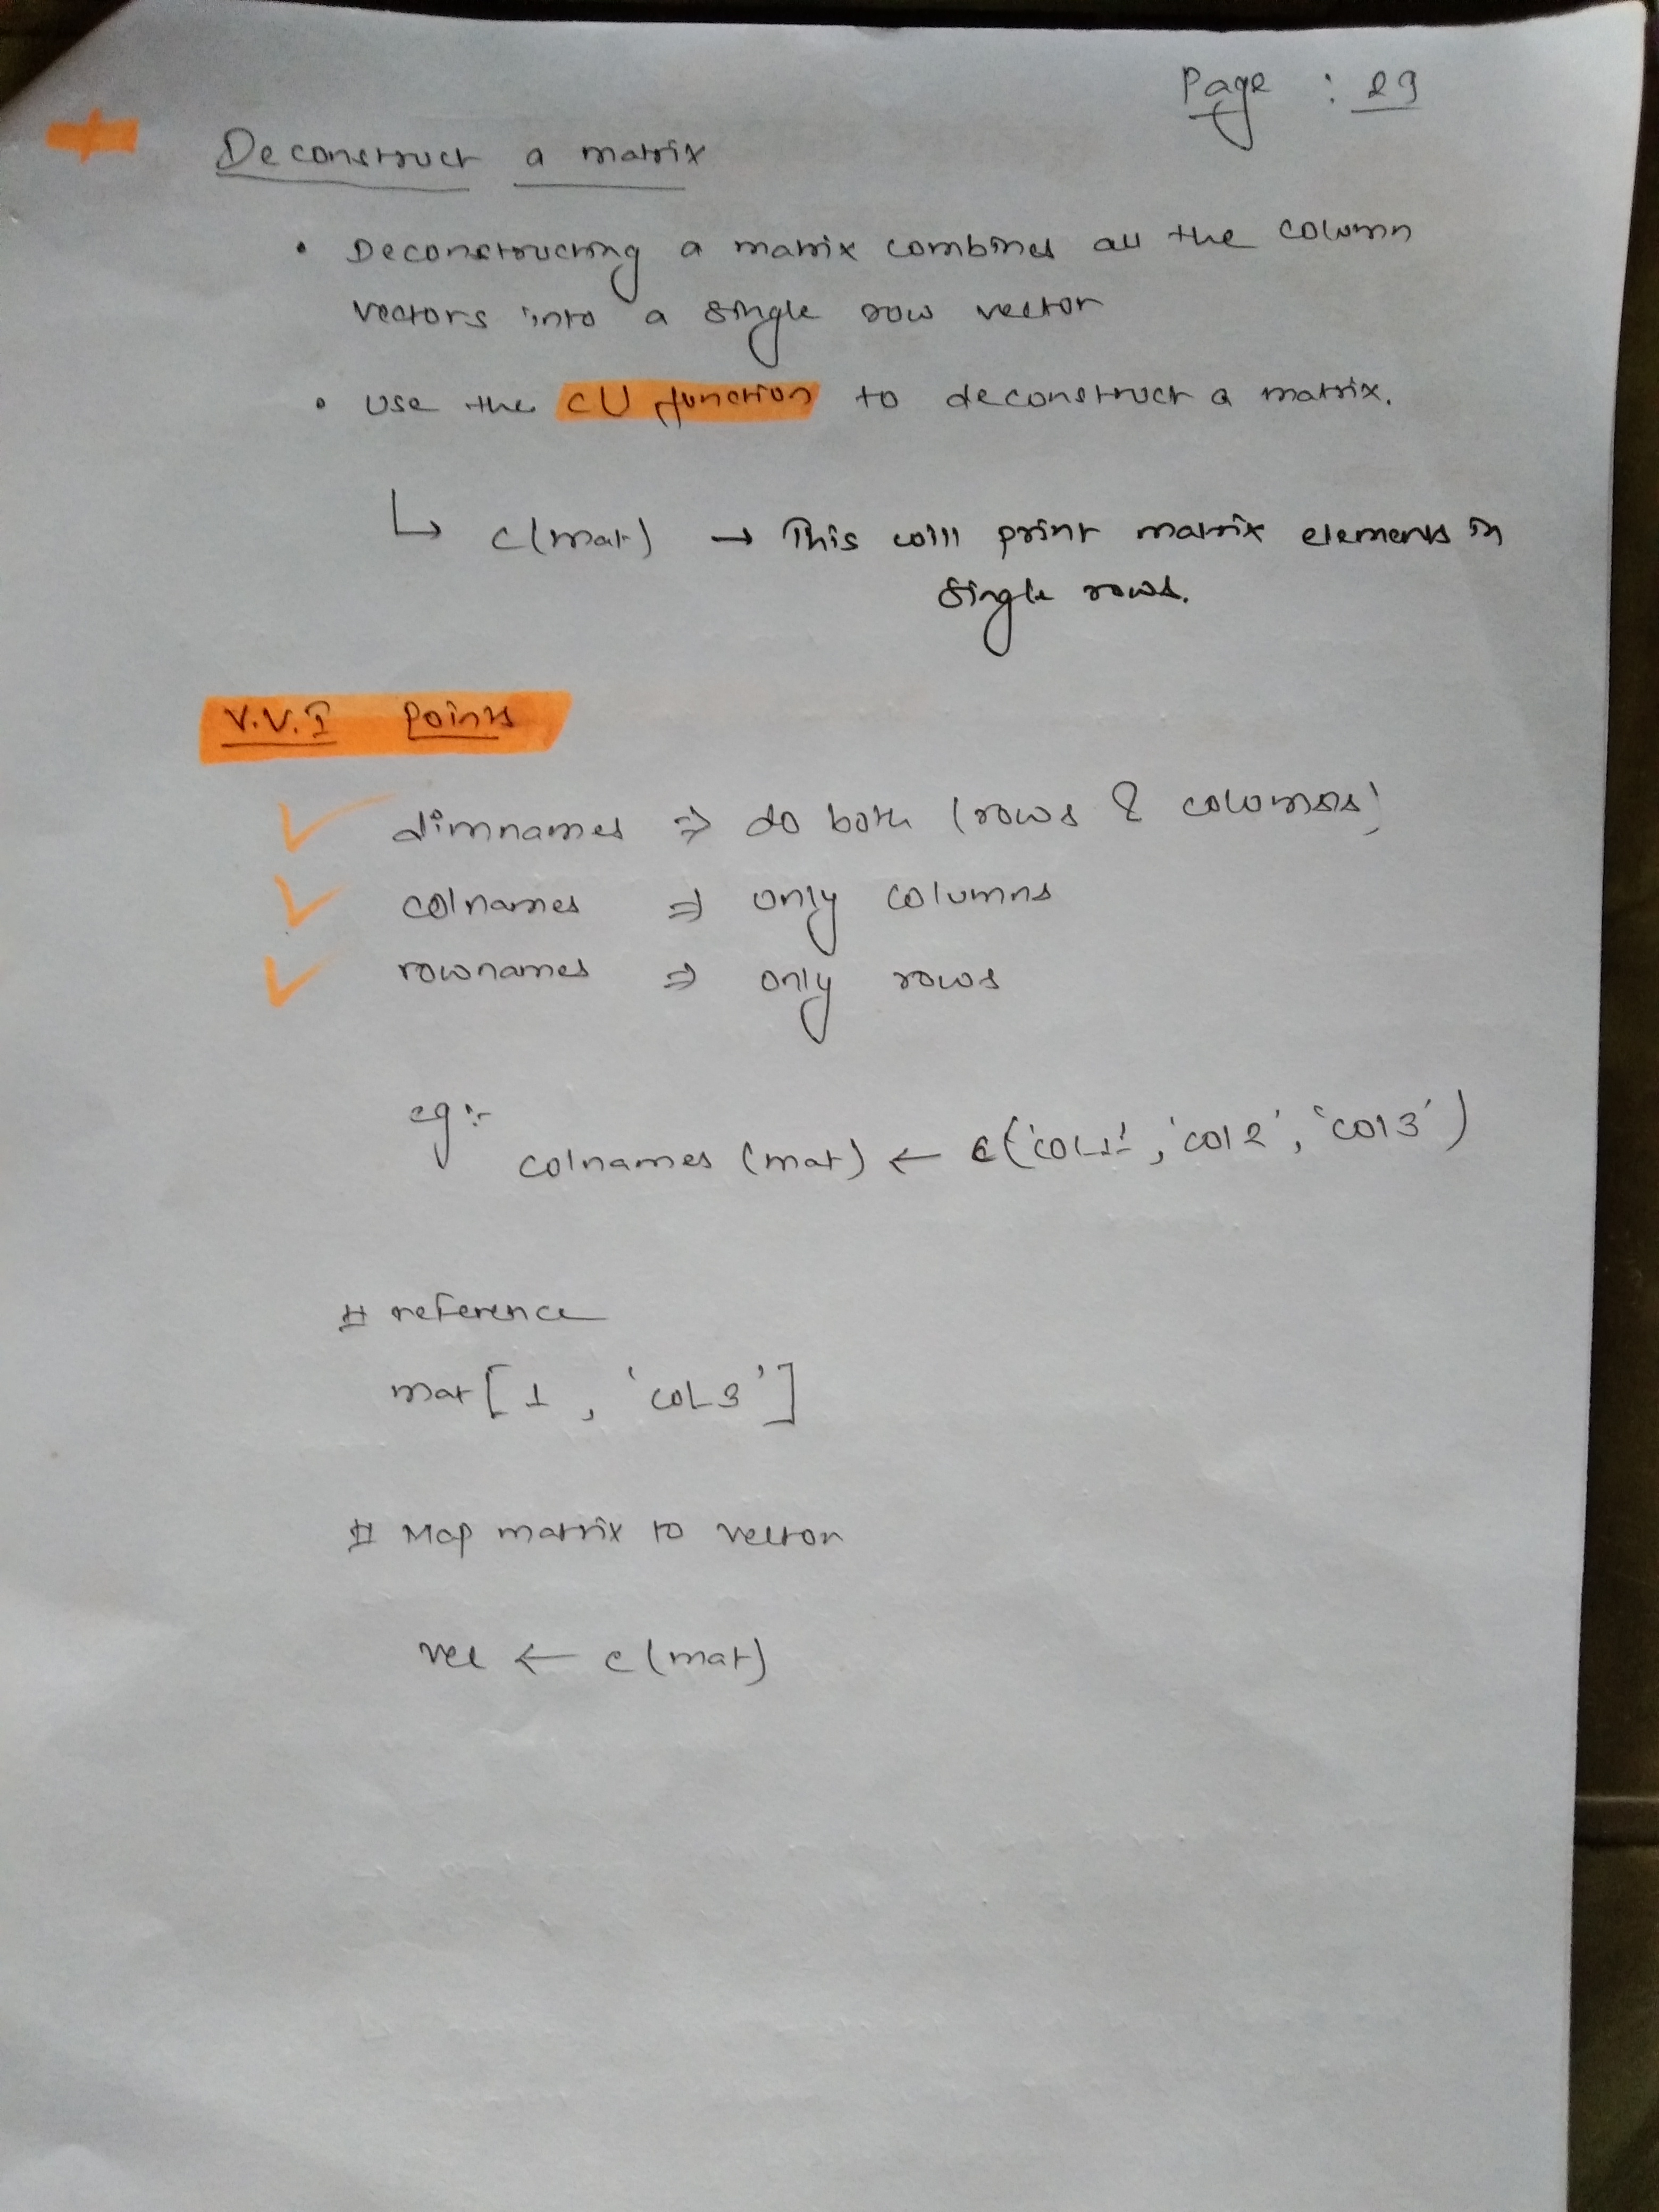 Page : 29
Deconstruct a matrix
• Deconstructing a matrix combines all the column
vectors into a single row vector
• Use the c() function to deconstruct a matrix.
↳ c(mat) → This will print matrix elements in
single rows.
V.V.I Points
✓ dimnames ⇒ do both (rows & columns)
✓ colnames ⇒ only columns
✓ rownames ⇒ only rows
eg:-
colnames (mat) ← c('COL1', 'col2', 'col3')
# reference
mat[1, 'COL3']
# Map matrix to vector
vec ← c(mat)